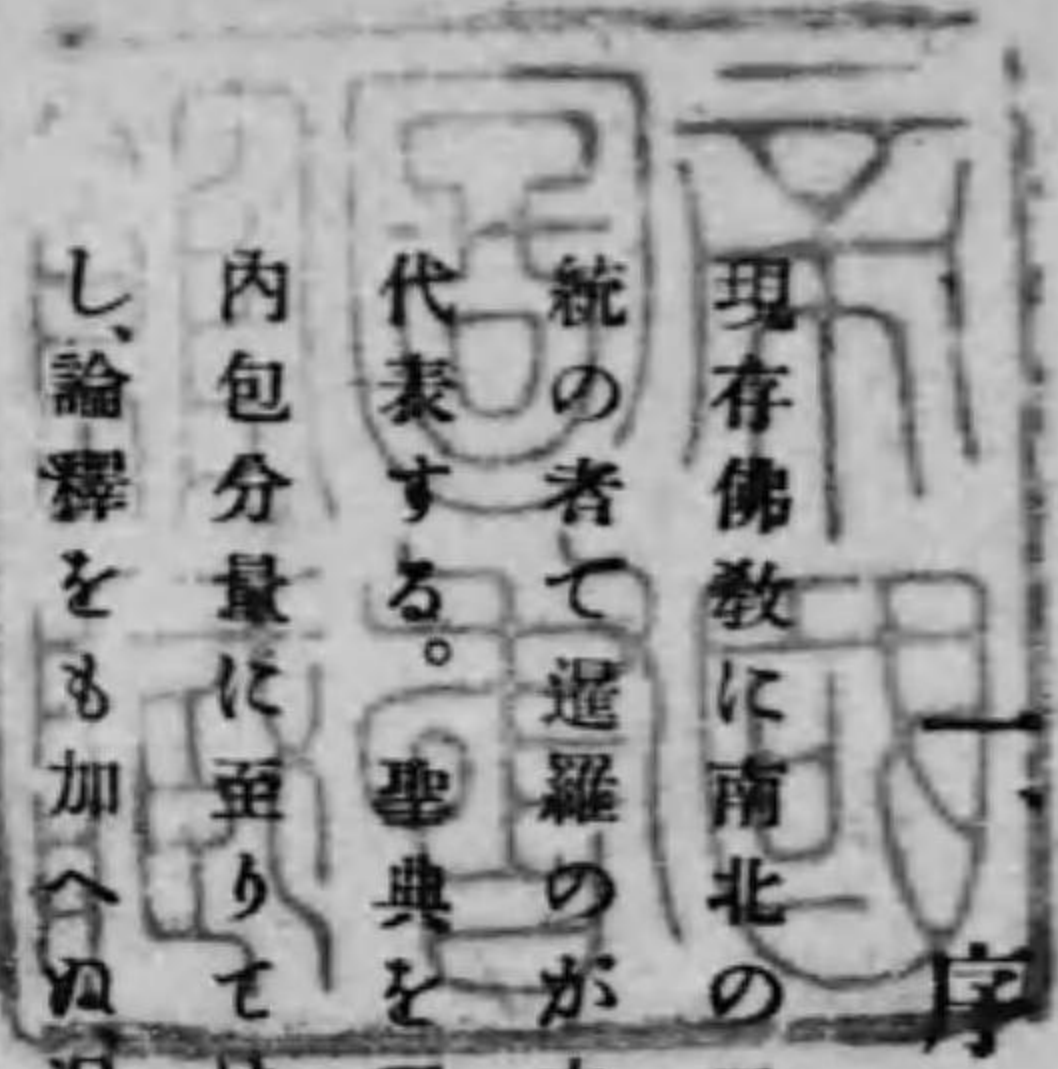 一、序
現存佛敎に南北の
統の者て暹羅のが
代表する。聖典を
內包分量に至りて
し、論釋をも加へぬ
帝國圖書館藏